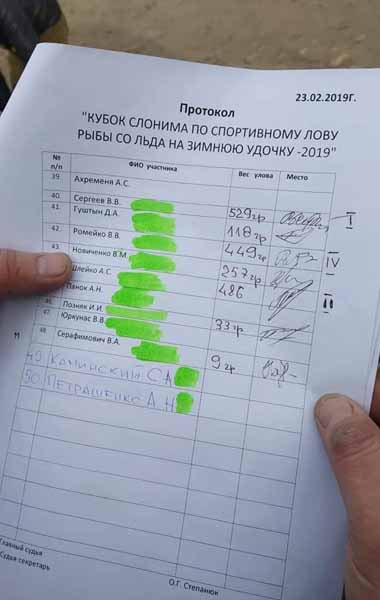 23.02.2019г.
Протокол
"КУБОК СЛОНИМА ПО СПОРТИВНОМУ ЛОВУ
РЫБЫ СО ЛЬДА НА ЗИМНЮЮ УДОЧКУ -2019"
№ п/п ФИО участника Вес улова Место
39. Ахременя А.С.
40. Сергеев В.В. 529гр I
41. Гуштын Д.А. 118гр
42. Ромейко В.В. 449гр IV
43. Новиченко В.М 257гр
Шлейко А.С. 486 II
Панок А.Н.
46. Позняк И.И.
47. Юркунас В.В 33гр
48. Серафимович В.А. 9гр
49 КАМИНСКИЙ С.А
50. ПЕТРАШЕНКО А.Н
Главный судья
Судья секретарь
О.Г. Степанюк